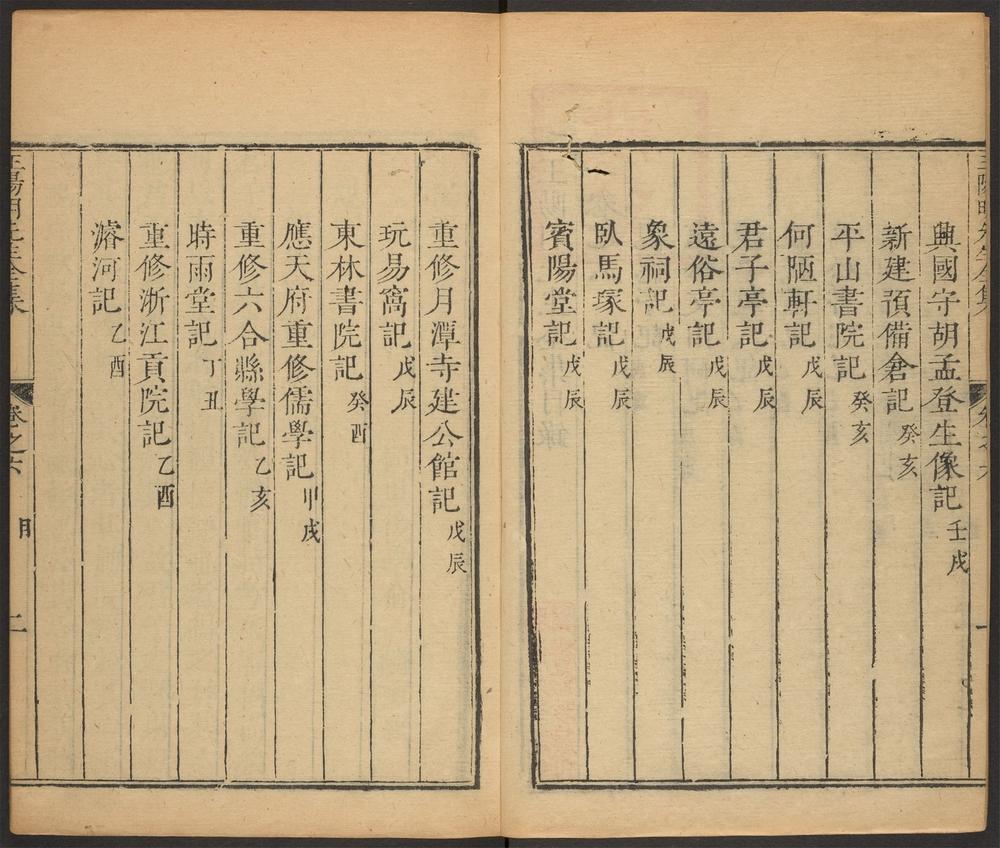 興國守胡孟登生像記壬戌
新建預備倉記癸亥
平山書院記癸亥
何陋軒記戊辰
君子亭記戊辰
遠俗亭記戊辰
象祠記戊辰
臥馬塚記戊辰
賓陽堂記戊辰
重修月潭寺建公館記戊辰
玩易窩記戊辰
東林書院記癸酉
應天府重修儒學記甲戌
重修六合縣學記乙亥
時雨堂記丁丑
重修浙江貢院記乙酉
濬河記乙酉
王陽明先生全集 卷之六 目 二